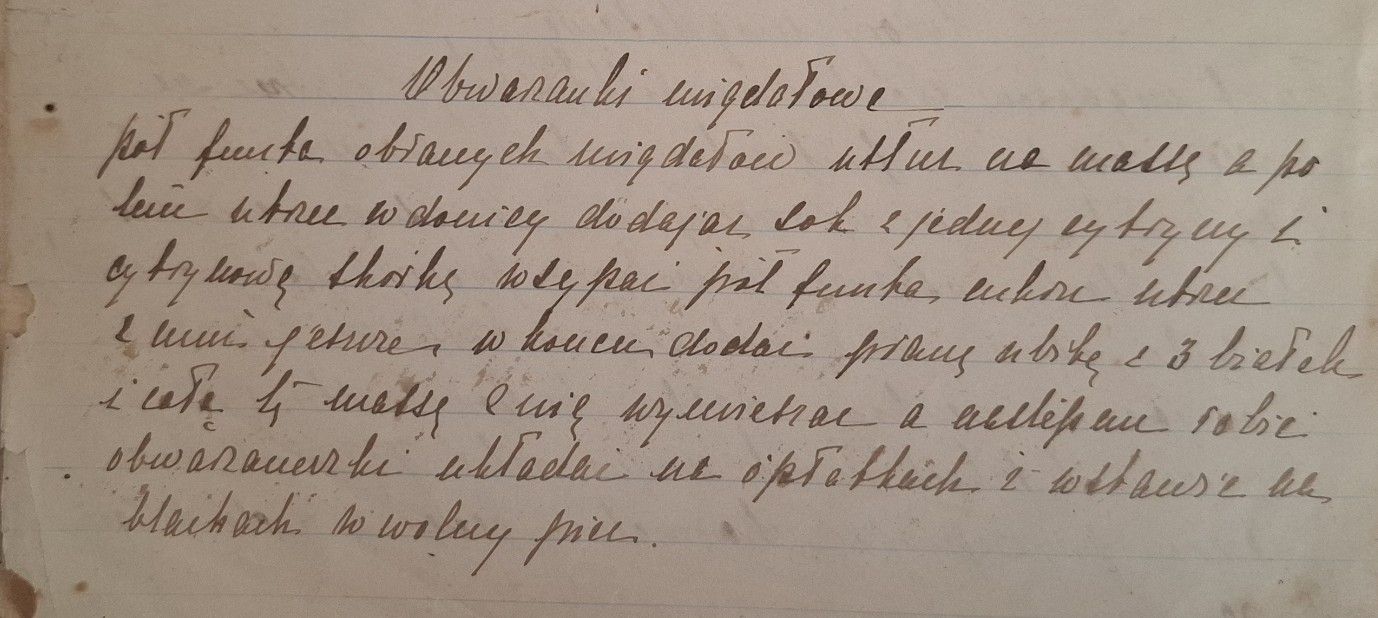 Obwaranki migdałowe
pół funta obranych migdałów utłuc na massę a po
tem utrzeć w donicy dodając sok z jednej cytryny i
cytrynową skórkę wsypać pół funta cukru utrzeć
z niemi jeszcze, w końcu dodać pianę ubitę z 3 białek
i całą tę massę z nią wymieszać a następnie robić
obwaraneczki układać na opłatkach i wstawić na
blachach w wolny piec.